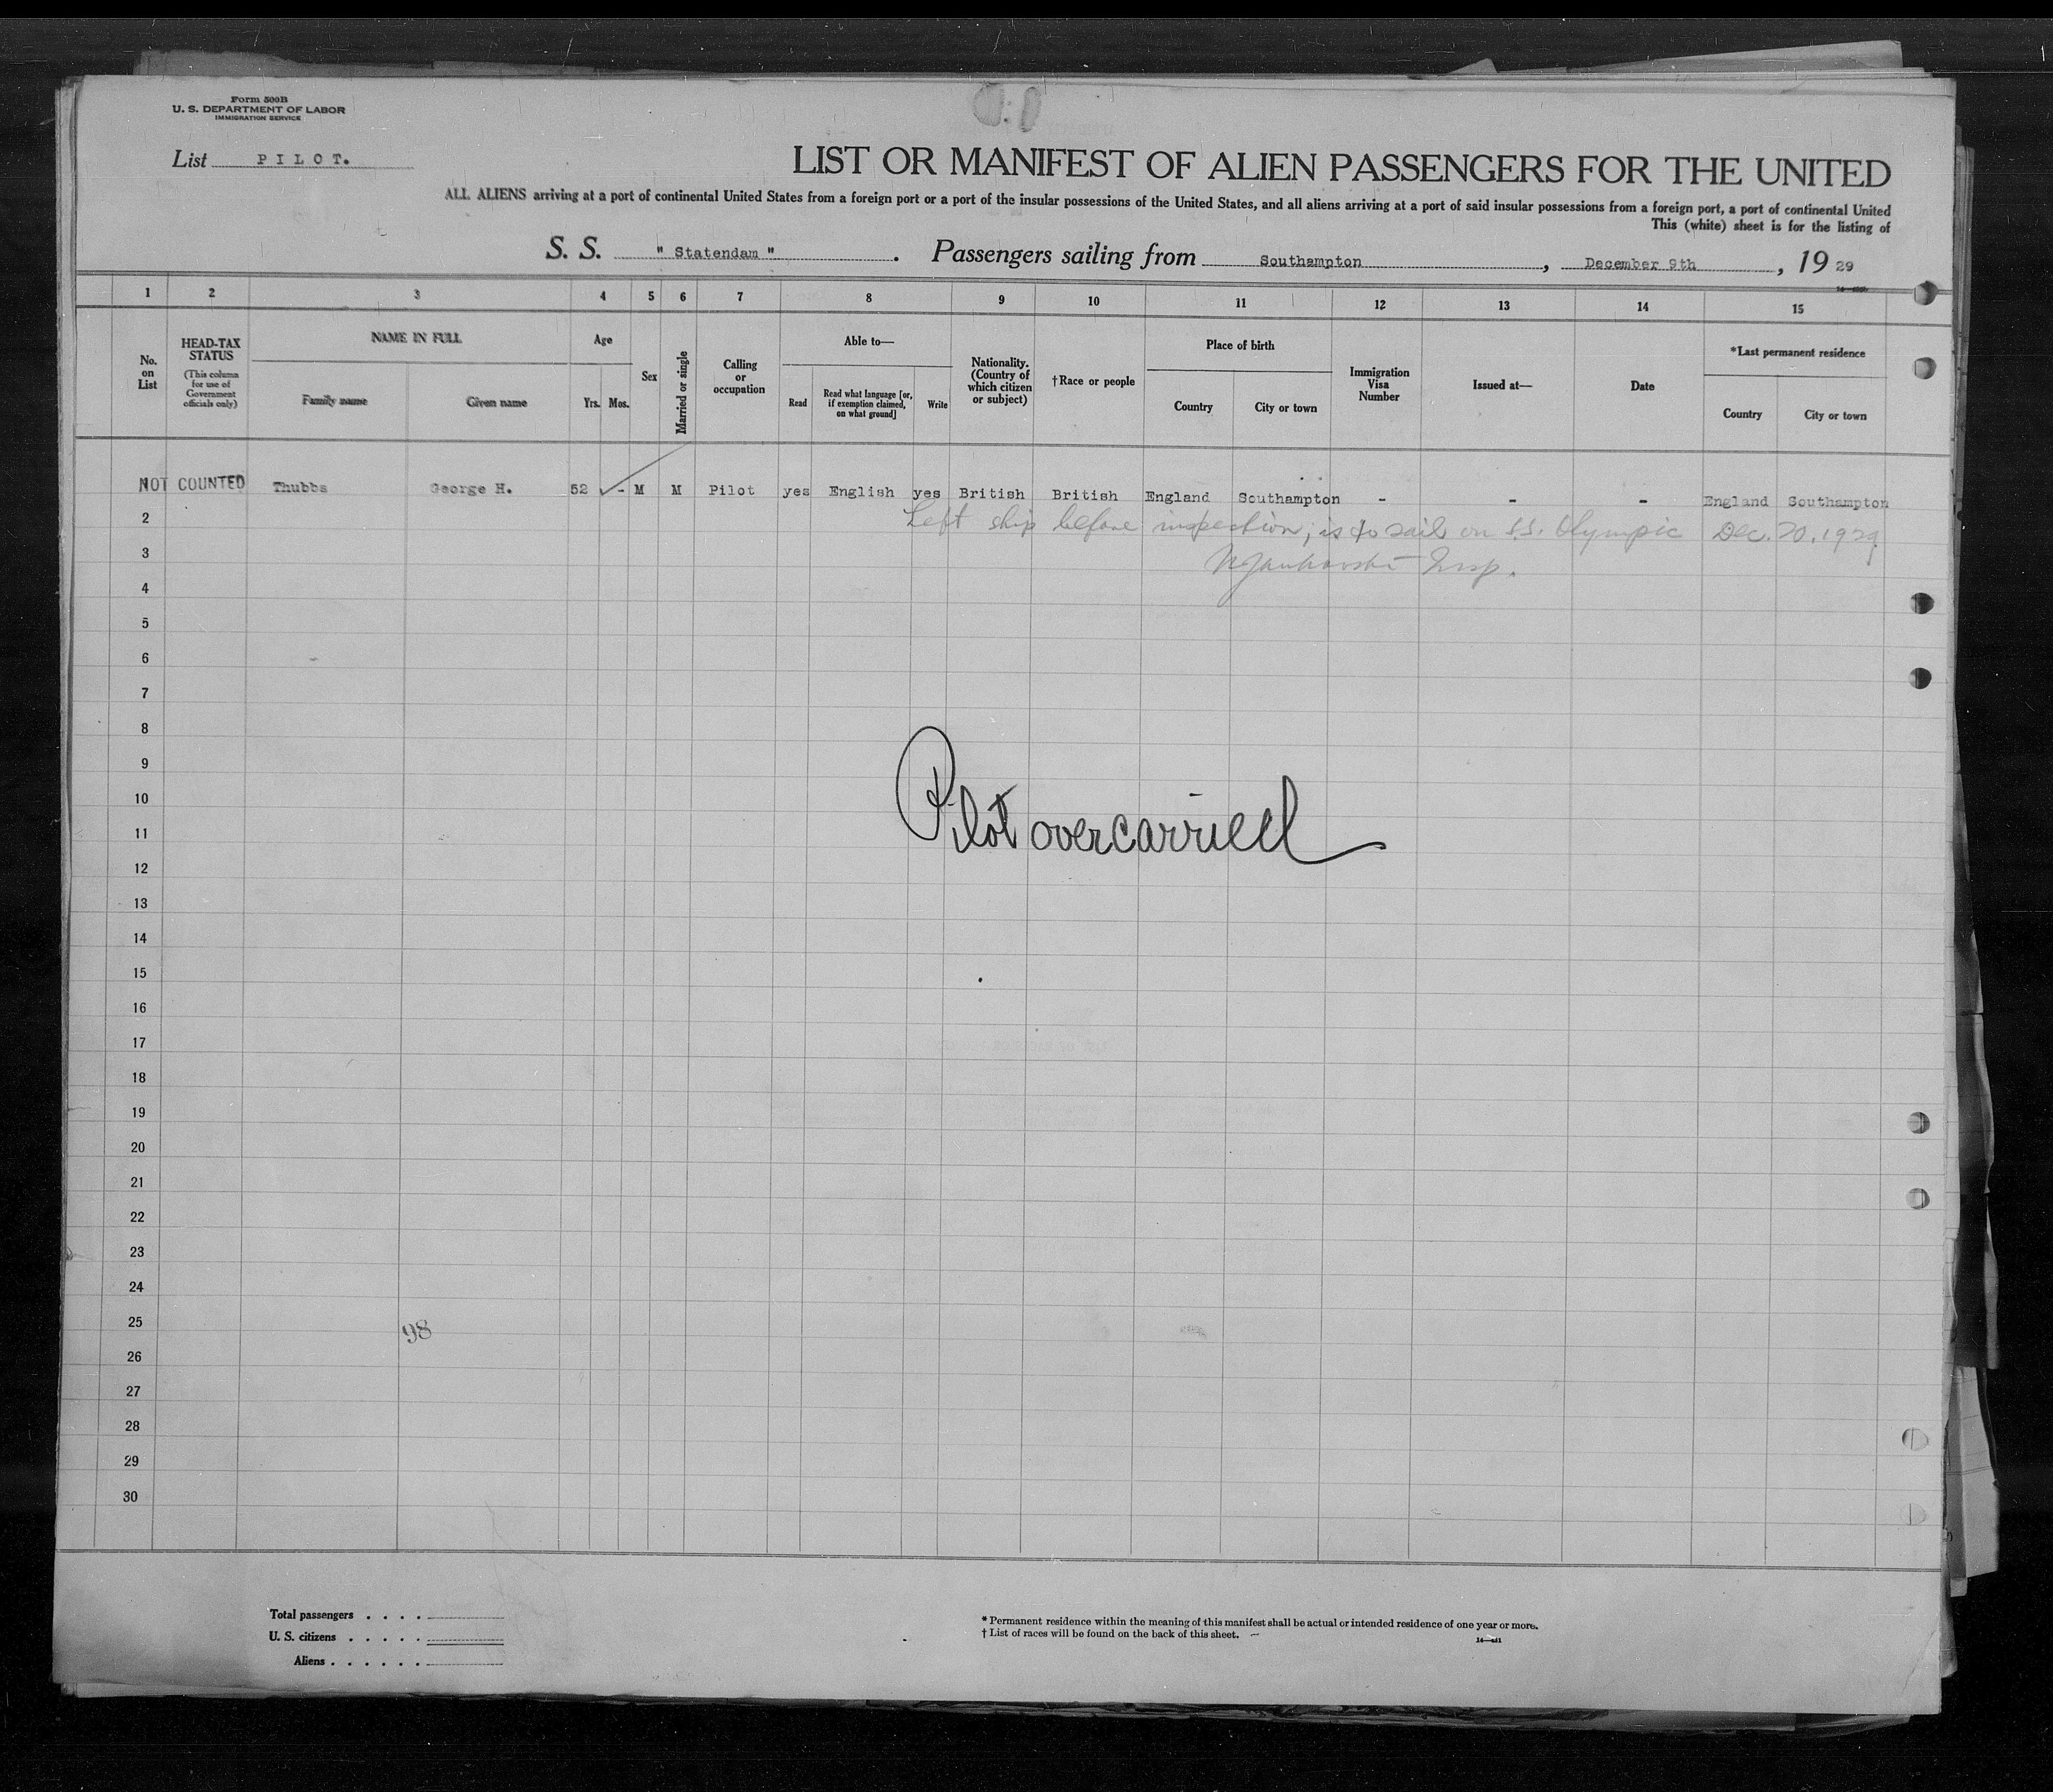 Form 500B
U. S. DEPARTMENT OF LABOR
IMMIGRATION SERVICE
List PILOT.
LIST OR MANIFEST OF ALIEN PASSENGERS FOR THE UNITED
ALL ALIENS arriving at a port of continental United States from a foreign port or a port of the insular possessions of the United States, and all aliens arriving at a port of said insular possessions from a foreign port, a port of continental United
This (white) sheet is for the listing of
S. S. " Statendam " . Passengers sailing from Southampton , December 9th , 19 29
1 2 3 4 5 6 7 8 9 10 11 12 13 14 15
No. on List
HEAD-TAX STATUS
(This column for use of Government officials only)
NAME IN FULL
Family name Given name
Age
Yrs. Mos.
Sex
Married or single
Calling or occupation
Able to—
Read
Read what language [or, if exemption claimed, on what ground]
Write
Nationality. (Country of which citizen or subject)
†Race or people
Place of birth
Country City or town
Immigration Visa Number
Issued at—
Date
*Last permanent residence
Country City or town
NOT COUNTED Thubbs George H. 52 ✓ - M M Pilot yes English yes British British England Southampton - - - England Southampton
2 Left ship before inspection; is to sail on S.S. Olympic Dec. 20, 1929
3 Insp.
4
5
6
7
8
9
10
Pilot overcarried
11
12
13
14
15
16
17
18
19
20
21
22
23
24
25
98
26
27
28
29
30
Total passengers . . . .
U. S. citizens . . . . .
Aliens . . . . . .
* Permanent residence within the meaning of this manifest shall be actual or intended residence of one year or more.
† List of races will be found on the back of this sheet.